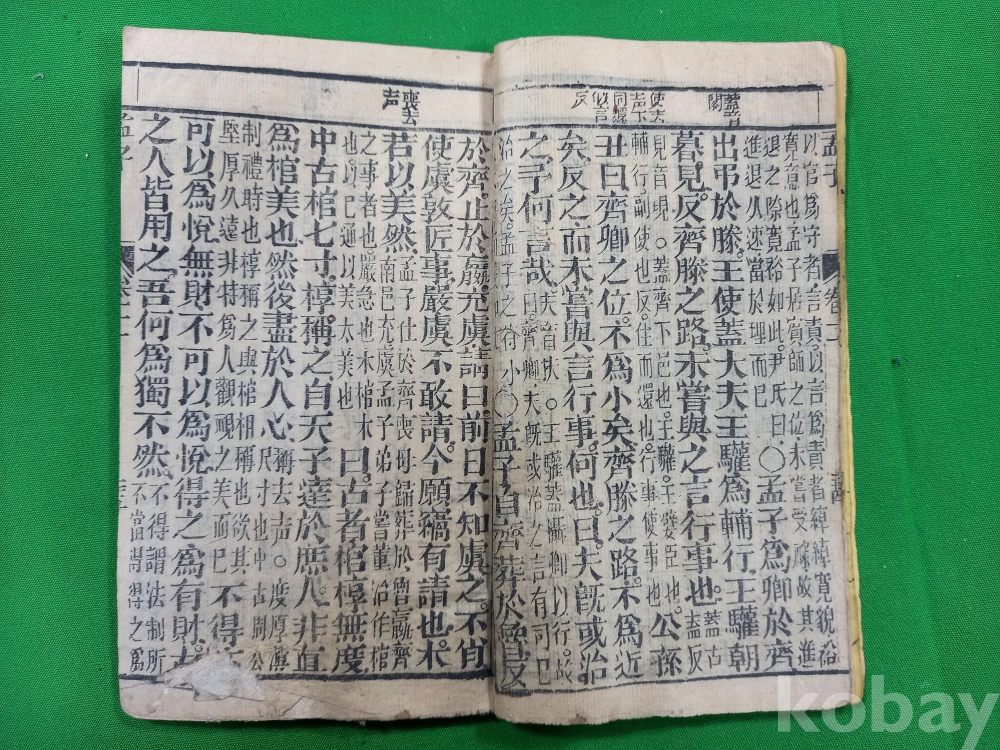 蓋音
閤
使去
声下
同還
似宣
反
孟子
以官為守者言責以言為責者綽綽寬貌裕
寬意也孟子居賓師之位未嘗受祿故其進
退之際寬裕如此尹氏曰
進退久速當於理而已
〇孟子為卿於齊
出吊於滕。王使蓋大夫王驩為輔行王驩朝
暮見。反齊滕之路未嘗與之言行事也。蓋古
蓋反
見音現。〇蓋齊下邑也。王驩。王嬖臣也。
輔行副使也。反往而還也。行事使事也。
公孫
丑曰齊卿之位。不為小矣。齊滕之路。不為近
矣。反之而未嘗與言行事。何也。曰。夫既或治
之。予何言哉
夫音扶。〇王驩蓋攝卿以行。故
曰齊卿夫既或治之言有司已
治之矣孟子之待小
〇孟子自齊葬於魯反
喪去
声
於齊。止於嬴。充虞請曰。前日不知虞之不肖
使虞敦匠事。嚴虞不敢請。今願竊有請也。木
若以美然
孟子仕於齊喪母歸葬於魯嬴齊
南邑充虞孟子弟子嘗董治作棺
之事者也嚴急也木棺木
也以已通以美太美也
曰。古者棺椁無度
中古棺七寸。椁稱之。自天子達於庶人。非直
為棺美也。然後盡於人心
稱去声。〇度厚薄
尺寸也中古周公
制禮時也椁稱之與棺相稱也欲其
堅厚久遠非特為人觀視之美而已
不得不
可以為悅無財不可以為悅得之為有財。古
之人皆用之。吾何為獨不然
不得謂法制所
不當得得之為
孟子
kobay